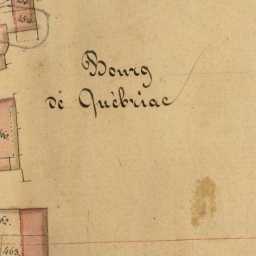 Bourg
de Québriac
463